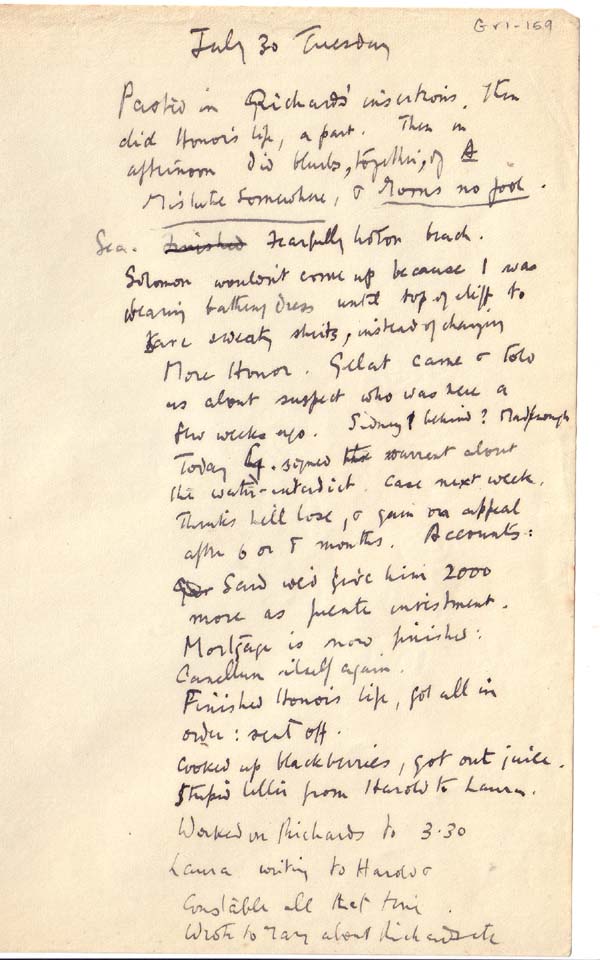 Gr1-159
July 30 Tuesday
Pasted in Richards' insertions. Then
did Honor's life, a part. Then in
afternoon did blurbs, together, of A
Mistake Somewhere, & no fool.
Sea. Finished Fearfully hot on beach.
Solomon wouldn't come up because I was
wearing bathing dress until top of cliff to
save sweaty shirts, instead of changing
More Honor. Gelat came & told
us about suspect who was here a
few weeks ago. Sidney behind?
Today G. signed the warrant about
the water-interdict. Case next week.
Thinks he'll lose, & gain on appeal
after 6 or 8 months. Accounts:
Said we'd give him 2000
more as puente investment.
Mortgage is now finished:
Canellun itself again.
Finished Honor's life, got all in
order: sent off.
Cooked up blackberries, got out juice.
Stupid letter from Harold to Laura.
Worked on Richards to 3.30
Laura writing to Harold &
Constable all that time.
Wrote to about Richards etc